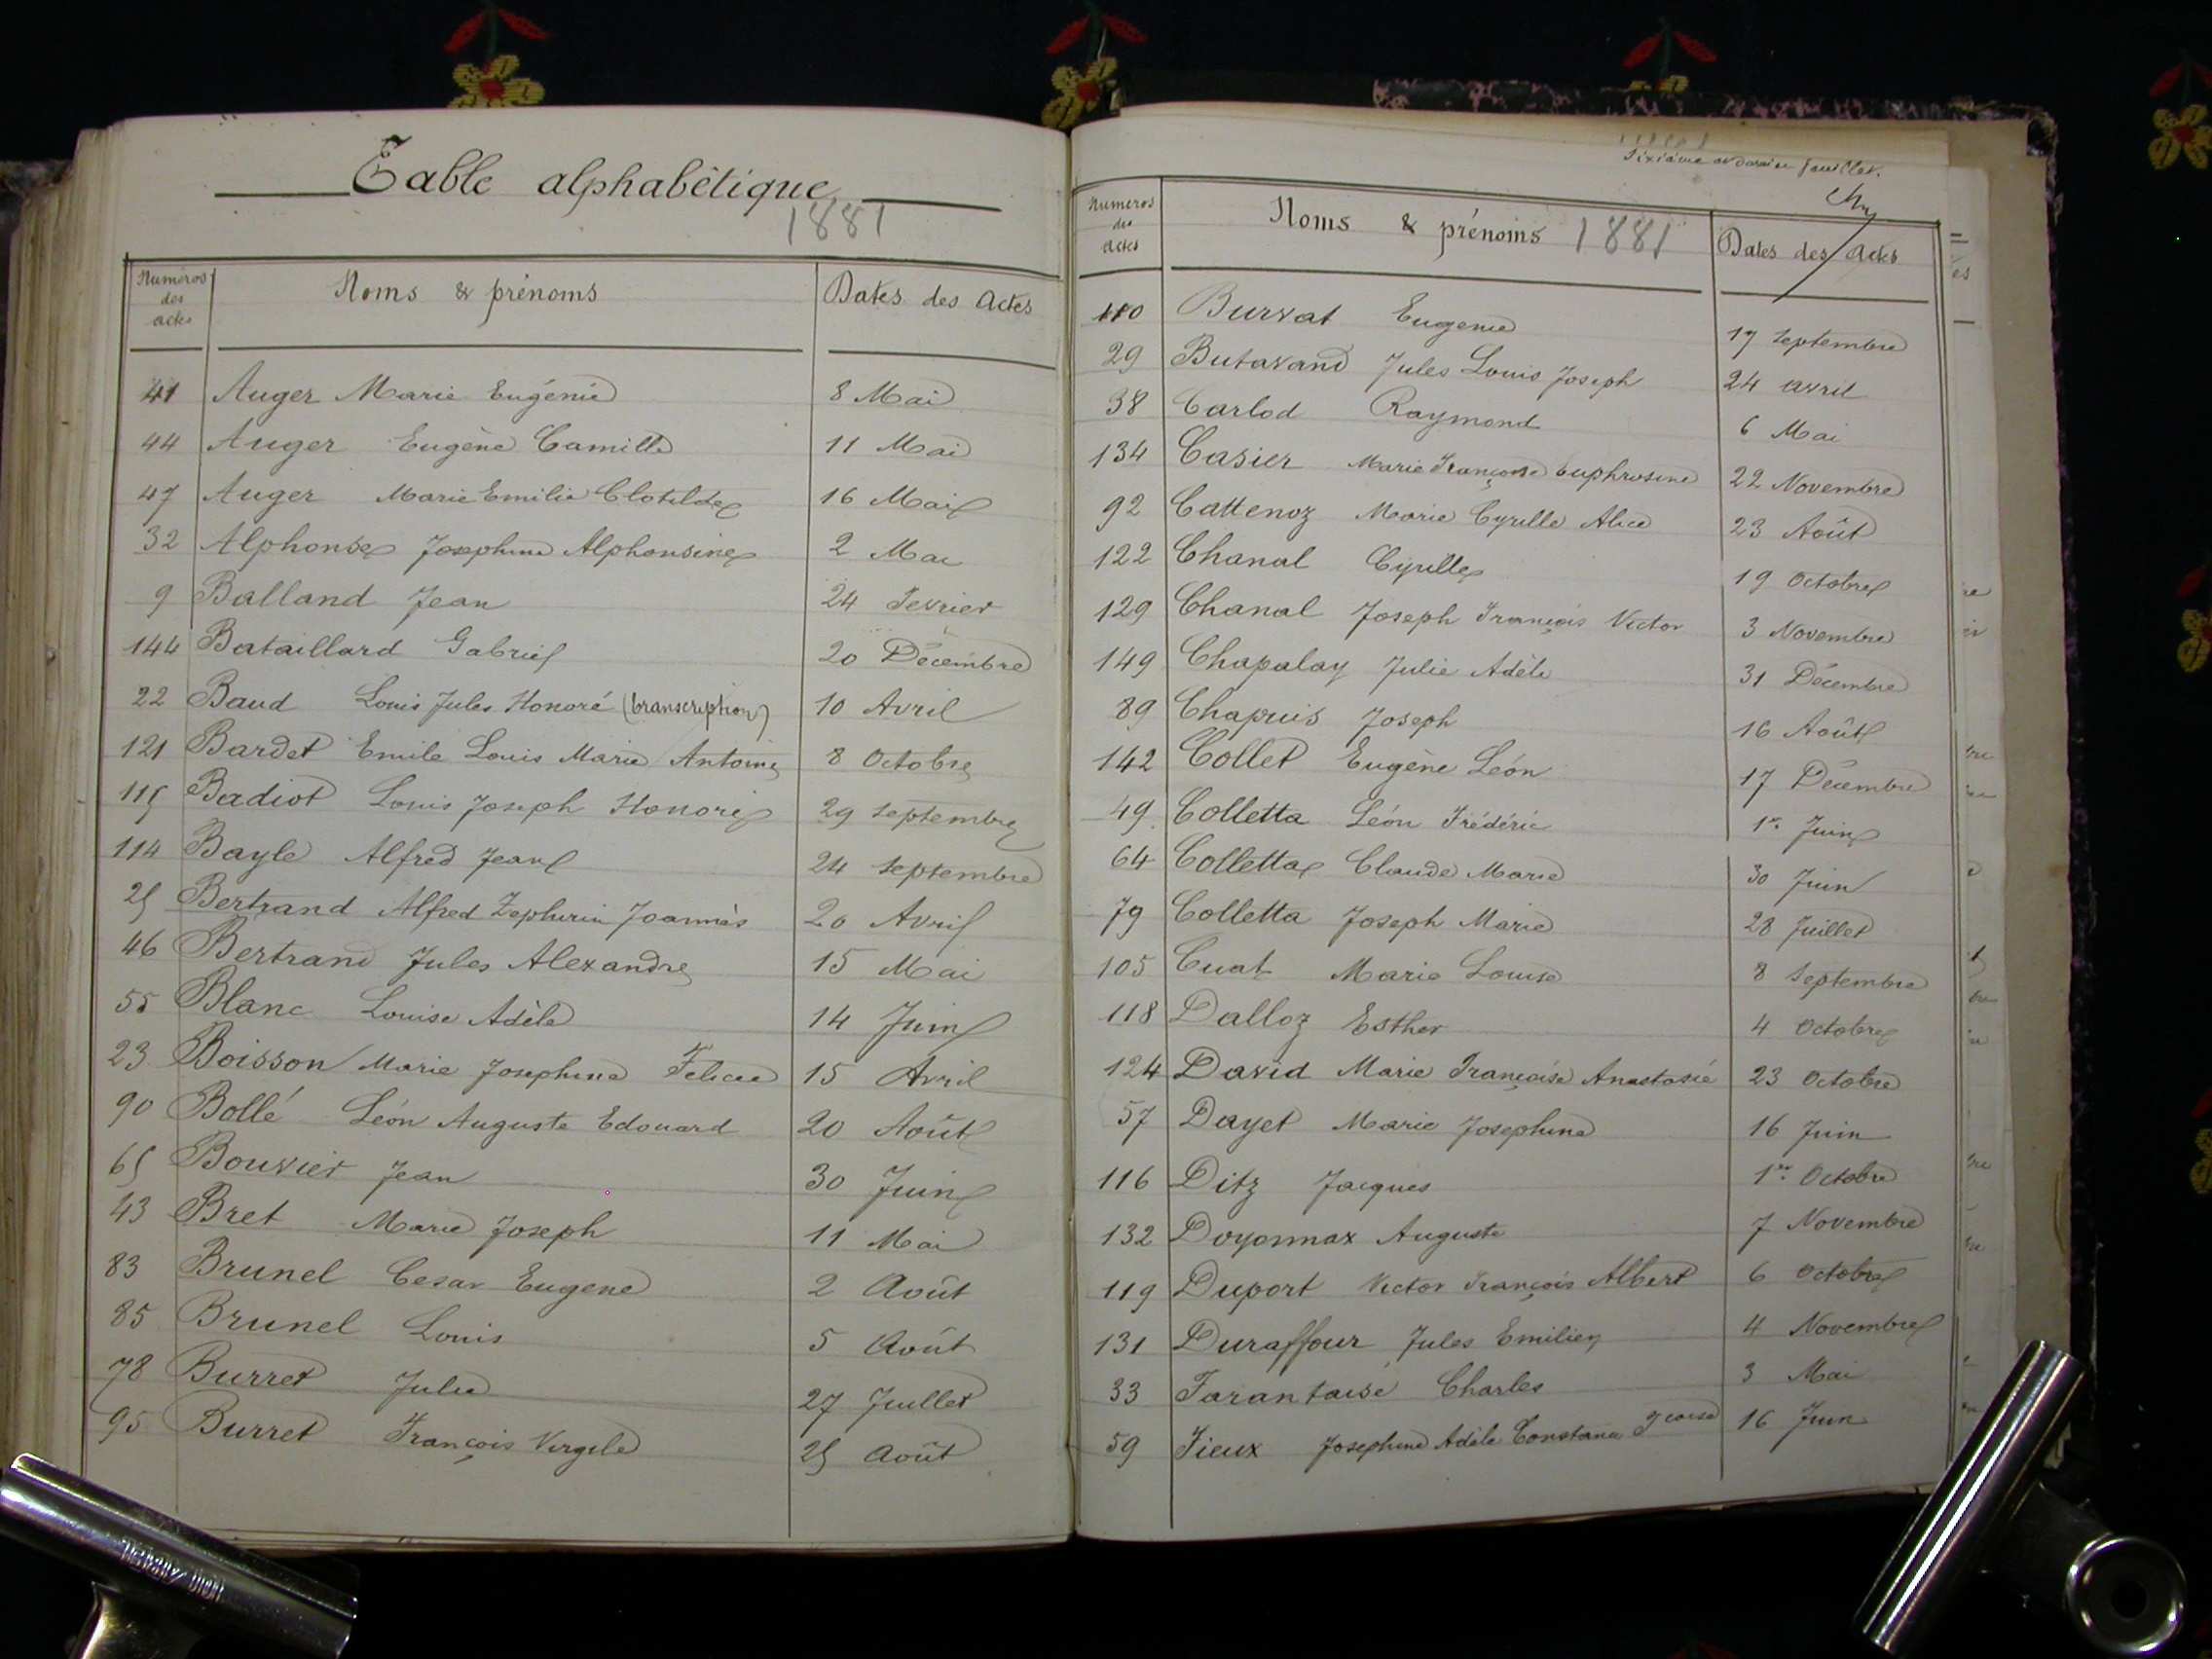 Table alphabétique
1881
Numéros des actes Noms & prénoms Dates des Actes
41 Auger Marie Eugénie 8 Mai
44 Auger Eugène Camille 11 Mai
47 Auger Marie Emilie Clotilde 16 Mai
32 Alphonse Josephine Alphonsine 2 Mai
9 Balland Jean 24 Fevrier
144 Bataillard Gabriel 20 Décembre
22 Baud Louis Jules Honoré (transcription) 10 Avril
121 Bardet Emile Louis Marie Antoine 8 Octobre
115 Badiot Louis Joseph Honoré 29 Septembre
114 Bayle Alfred Jean 24 Septembre
25 Bertrand Alfred Zephirin Joannès 20 Avril
46 Bertrand Jules Alexandre 15 Mai
55 Blanc Louise Adèle 14 Juin
23 Boisson Marie Josephine Felicie 15 Avril
90 Bollé Léon Auguste Edouard 20 Août
65 Bouvier Jean 30 Juin
43 Bret Marie Joseph 11 Mai
83 Brunel Cesar Eugene 2 Août
85 Brunel Louis 5 Août
78 Burret Julie 27 Juillet
95 Burret François Virgile 25 Août
Sixième et dernier feuillet.
Numéros des actes Noms & prénoms 1881 Dates des Actes
110 Burvat Eugenie 17 Septembre
29 Butavand Jules Louis Joseph 24 avril
38 Carlod Raymond 6 Mai
134 Casier Marie Françoise Euphrosine 22 Novembre
92 Cattenoz Marie Cyrille Alice 23 Août
122 Chanal Cyrille 19 Octobre
129 Chanal Joseph François Victor 3 Novembre
149 Chapalay Julie Adèle 31 Décembre
89 Chapuis Joseph 16 Août
142 Collet Eugène Léon 17 Décembre
49 Colletta Léon Frédéric 1er Juin
64 Colletta Claude Marie 30 Juin
79 Colletta Joseph Marie 28 Juillet
105 Cuat Marie Louise 8 Septembre
118 Dalloz Esther 4 Octobre
124 David Marie Françoise Anastasie 23 Octobre
57 Dayet Marie Josephine 16 Juin
116 Ditz Jacques 1er Octobre
132 Doyonnax Auguste 7 Novembre
119 Duport Victor François Albert 6 Octobre
131 Duraffour Jules Emilien 4 Novembre
33 Farantaise Charles 3 Mai
59 Fieux Josephine Adèle Constance 16 Juin